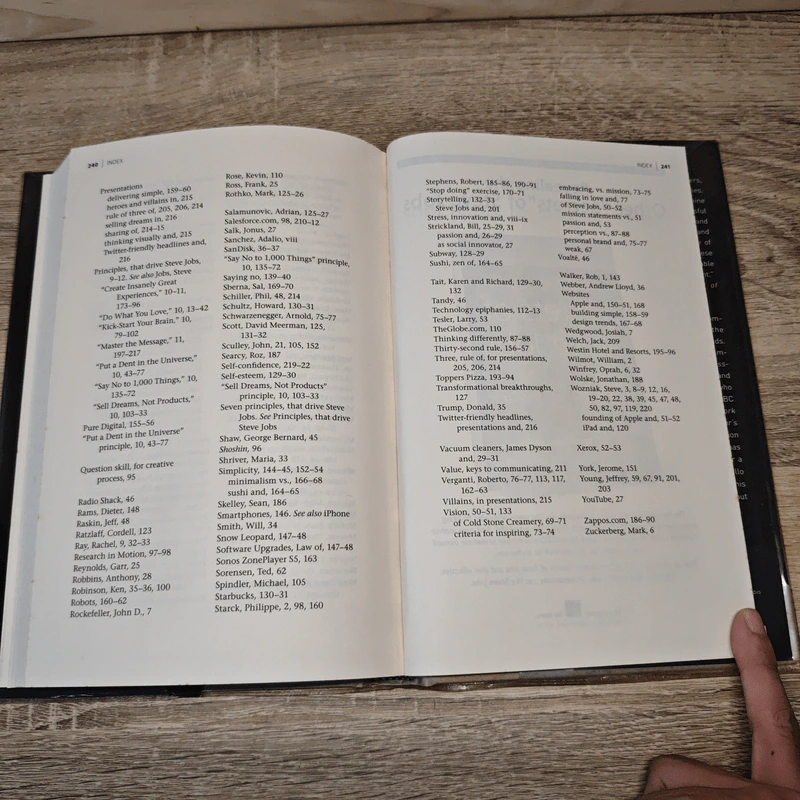 240 | INDEX
Presentations
delivering simple, 159–60
heroes and villains in, 215
rule of three of, 205, 206, 214
selling dreams in, 216
sharing of, 214–15
thinking visually and, 215
Twitter-friendly headlines and,
216
Principles, that drive Steve Jobs,
9–12. See also Jobs, Steve
"Create Insanely Great
Experiences," 10–11,
173–96
"Do What You Love," 10, 13–42
"Kick-Start Your Brain," 10,
79–102
"Master the Message," 11,
197–217
"Put a Dent in the Universe,"
10, 43–77
"Say No to 1,000 Things," 10,
135–72
"Sell Dreams, Not Products,"
10, 103–33
Pure Digital, 155–56
"Put a Dent in the Universe"
principle, 10, 43–77
Question skill, for creative
process, 95
Radio Shack, 46
Rams, Dieter, 148
Raskin, Jeff, 48
Ratzlaff, Cordell, 123
Ray, Rachel, 9, 32–33
Research in Motion, 97–98
Reynolds, Garr, 25
Robbins, Anthony, 28
Robinson, Ken, 35–36, 100
Robots, 160–62
Rockefeller, John D., 7
Rose, Kevin, 110
Ross, Frank, 25
Rothko, Mark, 125–26
Salamunovic, Adrian, 125–27
Salesforce.com, 98, 210–12
Salk, Jonus, 27
Sanchez, Adalio, viii
SanDisk, 36–37
"Say No to 1,000 Things" principle,
10, 135–72
Saying no, 139–40
Sberna, Sal, 169–70
Schiller, Phil, 48, 214
Schultz, Howard, 130–31
Schwarzenegger, Arnold, 75–77
Scott, David Meerman, 125,
131–32
Sculley, John, 21, 105, 152
Searcy, Roz, 187
Self-confidence, 219–22
Self-esteem, 129–30
"Sell Dreams, Not Products"
principle, 10, 103–33
Seven principles, that drive Steve
Jobs. See Principles, that drive
Steve Jobs
Shaw, George Bernard, 45
Shoshin, 96
Shriver, Maria, 33
Simplicity, 144–45, 152–54
minimalism vs., 166–68
sushi and, 164–65
Skelley, Sean, 186
Smartphones, 146. See also iPhone
Smith, Will, 34
Snow Leopard, 147–48
Software Upgrades, Law of, 147–48
Sonos ZonePlayer S5, 163
Sorensen, Ted, 62
Spindler, Michael, 105
Starbucks, 130–31
Starck, Philippe, 2, 98, 160
INDEX | 241
Stephens, Robert, 185–86, 190–91
"Stop doing" exercise, 170–71
Storytelling, 132–33
Steve Jobs and, 201
Stress, innovation and, viii–ix
Strickland, Bill, 25–29, 31
passion and, 26–29
as social innovator, 27
Subway, 128–29
Sushi, zen of, 164–65
Tait, Karen and Richard, 129–30,
132
Tandy, 46
Technology epiphanies, 112–13
Tesler, Larry, 53
TheGlobe.com, 110
Thinking differently, 87–88
Thirty-second rule, 156–57
Three, rule of, for presentations,
205, 206, 214
Toppers Pizza, 193–94
Transformational breakthroughs,
127
Trump, Donald, 35
Twitter-friendly headlines,
presentations and, 216
Vacuum cleaners, James Dyson
and, 29–31
Value, keys to communicating, 211
Verganti, Roberto, 76–77, 113, 117,
162–63
Villains, in presentations, 215
Vision, 50–51, 133
of Cold Stone Creamery, 69–71
criteria for inspiring, 73–74
embracing, vs. mission, 73–75
falling in love and, 77
of Steve Jobs, 50–52
mission statements vs., 51
passion and, 53
perception vs., 87–88
personal brand and, 75–77
weak, 67
Voalté, 46
Walker, Rob, 1, 143
Webber, Andrew Lloyd, 36
Websites
Apple and, 150–51, 168
building simple, 158–59
design trends, 167–68
Wedgwood, Josiah, 7
Welch, Jack, 209
Westin Hotel and Resorts, 195–96
Wilmot, William, 2
Winfrey, Oprah, 6, 32
Wolske, Jonathan, 188
Wozniak, Steve, 3, 8–9, 12, 16,
19–20, 22, 38, 39, 45, 47, 48,
50, 82, 97, 119, 220
founding of Apple and, 51–52
iPad and, 120
Xerox, 52–53
York, Jerome, 151
Young, Jeffrey, 59, 67, 91, 201,
203
YouTube, 27
Zappos.com, 186–90
Zuckerberg, Mark, 6